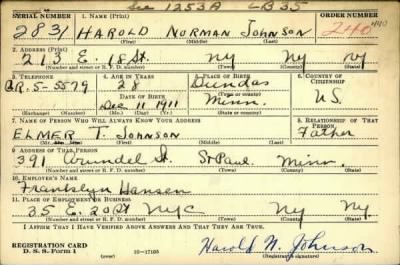 See 1253A LB35
SERIAL NUMBER 1. NAME (Print) ORDER NUMBER
2831 HAROLD NORMAN JOHNSON 240 440
(First) (Middle) (Last)
2. ADDRESS (Print)
213 E. 18 St. NY NY NY
(Number and street or R. F. D. number) (Town) (County) (State)
3. TELEPHONE 4. AGE IN YEARS 5. PLACE OF BIRTH 6. COUNTRY OF CITIZENSHIP
28 Dundas
DATE OF BIRTH (Town or county)
GR. 5-5579 Dec 11 1911 Minn. U.S.
(Exchange) (Number) (Mo.) (Day) (Yr.) (State or country)
7. NAME OF PERSON WHO WILL ALWAYS KNOW YOUR ADDRESS 8. RELATIONSHIP OF THAT PERSON
ELMER T. JOHNSON Father
(Mr., Mrs., Miss) (First) (Middle) (Last)
9. ADDRESS OF THAT PERSON
391 Arundel St. St Paul. Minn.
(Number and street or R. F. D. number) (Town) (County) (State)
10. EMPLOYER'S NAME
Franklyn Hansen
11. PLACE OF EMPLOYMENT OR BUSINESS
35 E. 20 St NYC NY NY
(Number and street or R. F. D. number) (Town) (County) (State)
I AFFIRM THAT I HAVE VERIFIED ABOVE ANSWERS AND THAT THEY ARE TRUE.
REGISTRATION CARD
D. S. S. Form 1 (over) 16-17105 Harold N. Johnson
(Registrant's signature)